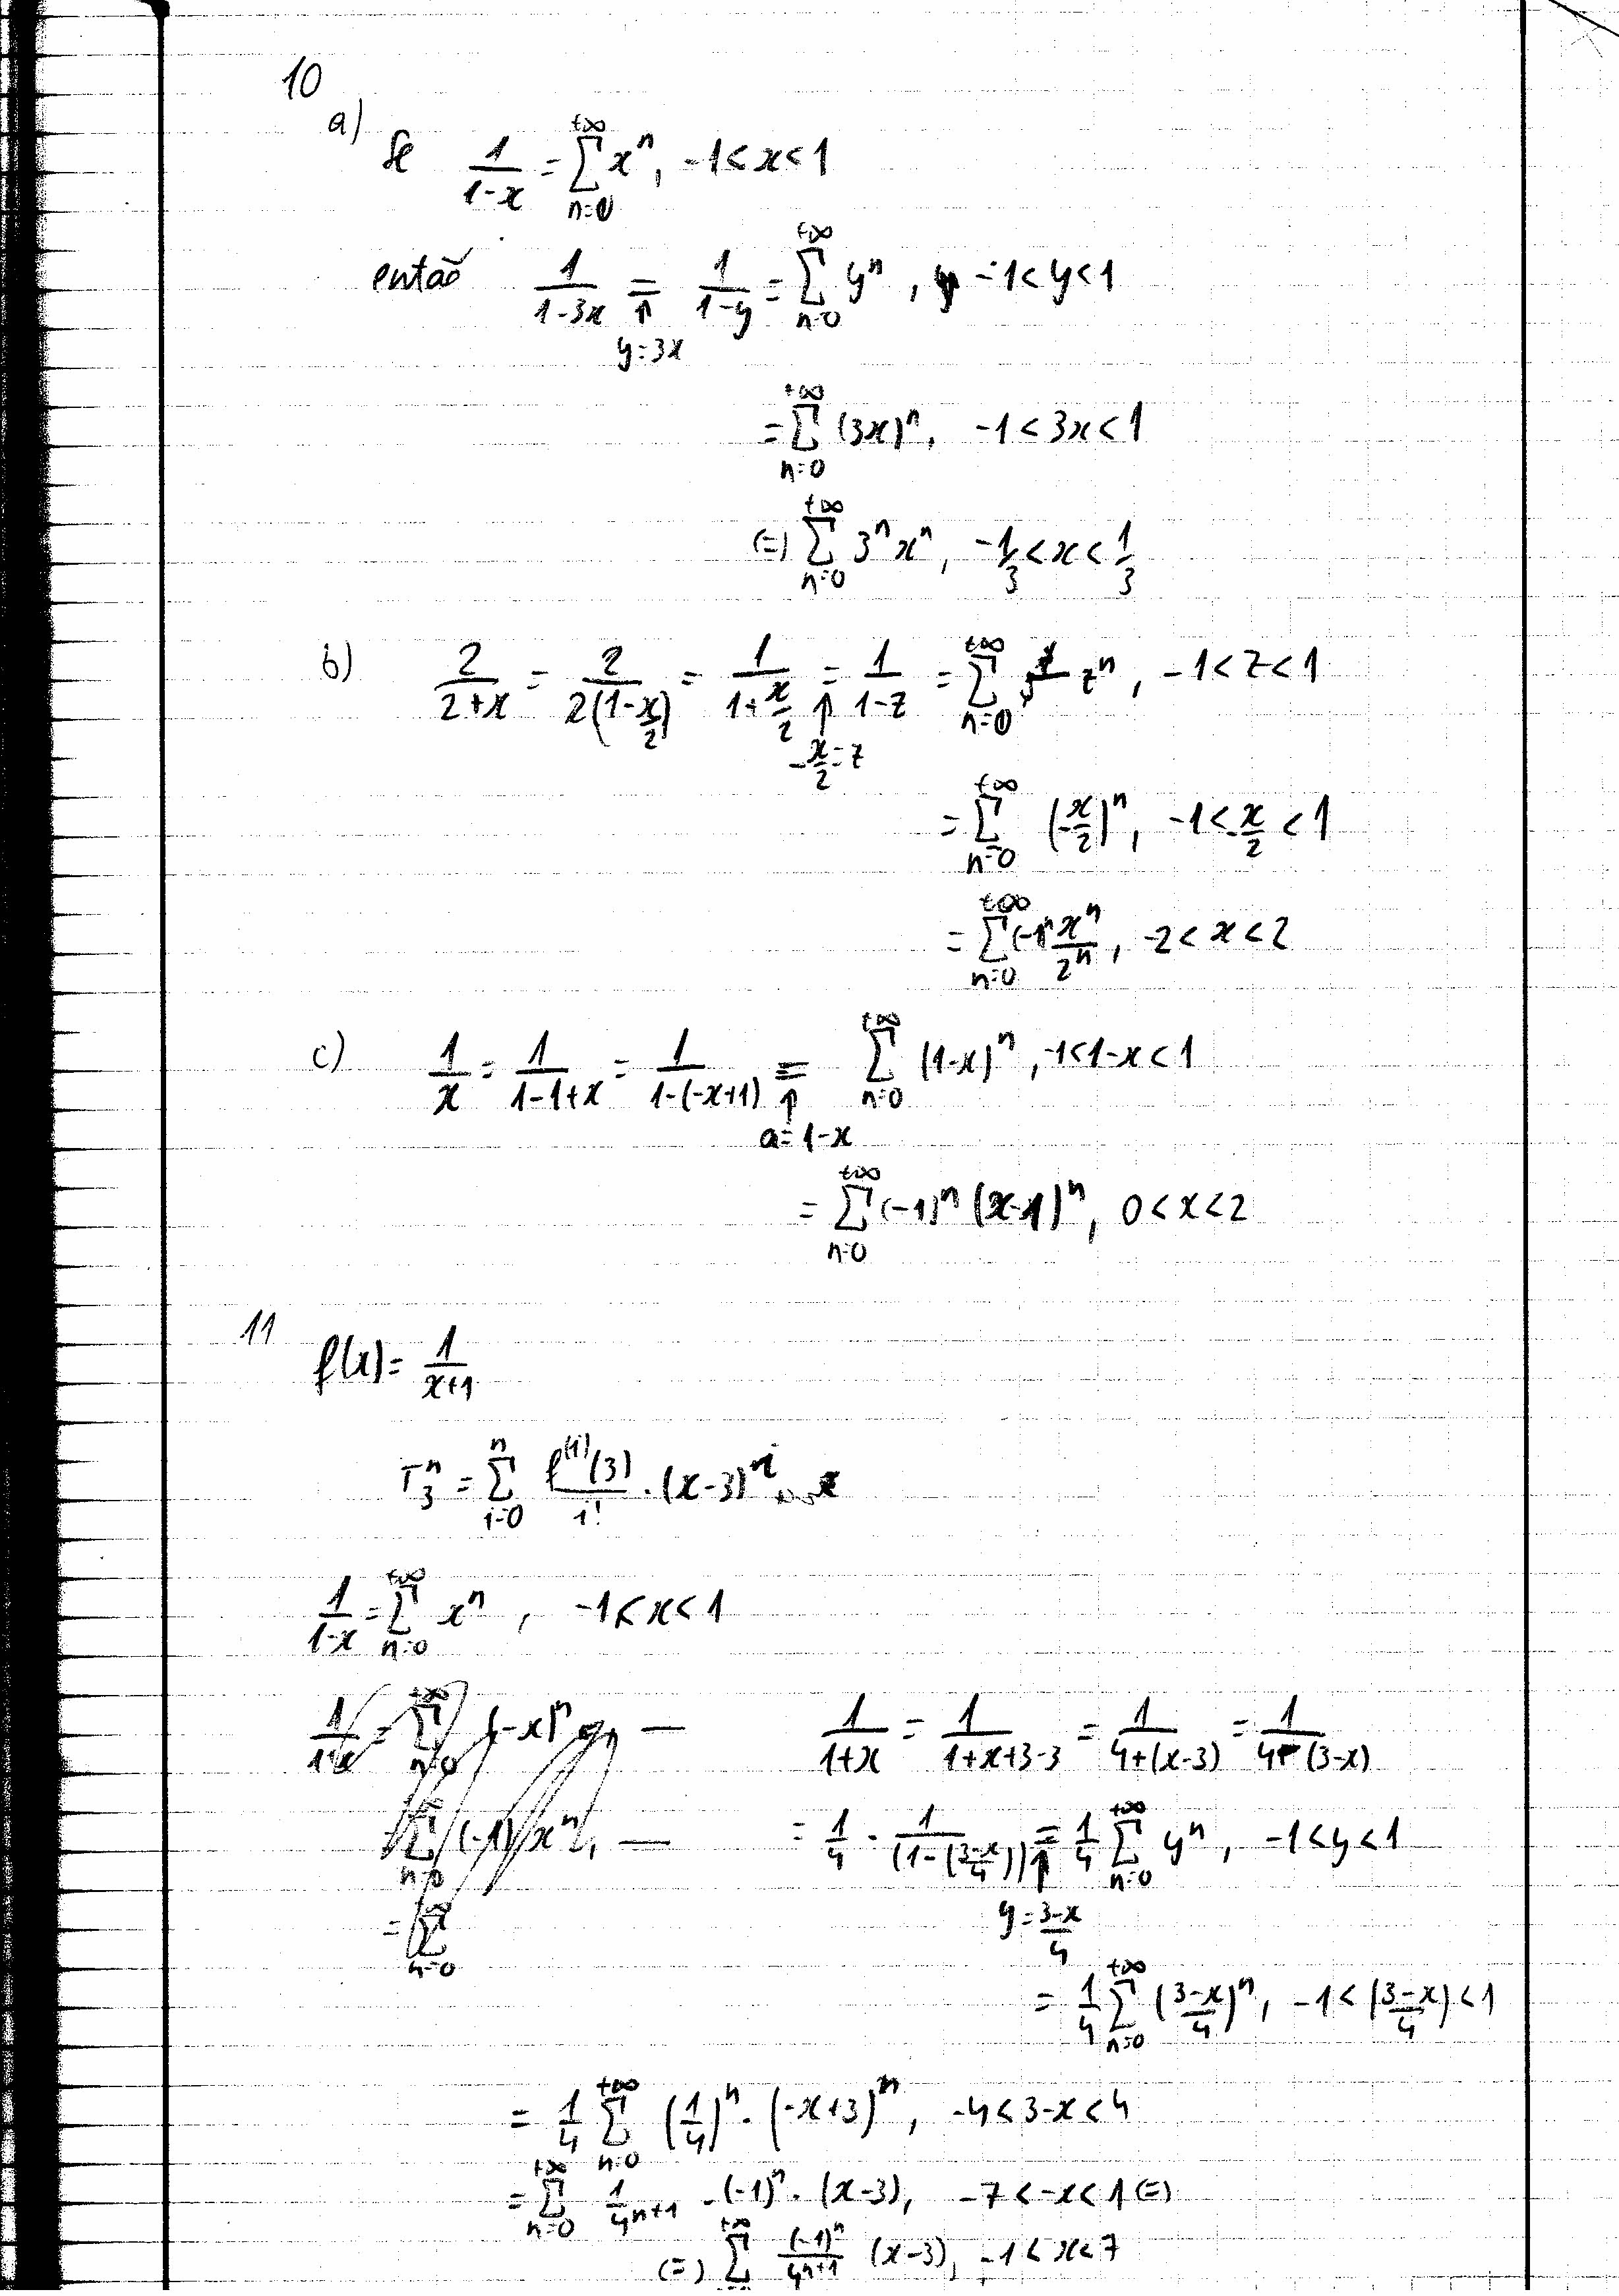 10
a)
Se 1/(1-x) = Σ_{n=0}^{+∞} x^n, -1<x<1
então 1/(1-3x) = (↑ y=3x) 1/(1-y) = Σ_{n=0}^{+∞} y^n, -1<y<1
= Σ_{n=0}^{+∞} (3x)^n, -1<3x<1
(=) Σ_{n=0}^{+∞} 3^n x^n, -1/3<x<1/3
b) 2/(2+x) = 2/(2(1-x/2)) = 1/(1+x/2) = (↑ -x/2=z) 1/(1-z) = Σ_{n=0}^{+∞} z^n, -1<z<1
= Σ_{n=0}^{+∞} (-x/2)^n, -1<-x/2<1
= Σ_{n=0}^{+∞} (-1)^n x^n/2^n, -2<x<2
c) 1/x = 1/(1-1+x) = 1/(1-(-x+1)) = (↑ a=1-x) Σ_{n=0}^{+∞} (1-x)^n, -1<1-x<1
= Σ_{n=0}^{+∞} (-1)^n (x-1)^n, 0<x<2
11
f(x) = 1/(x+1)
T_3^n = Σ_{i=0}^{n} f^{(i)}(3)/i! · (x-3)^i
1/(1-x) = Σ_{n=0}^{+∞} x^n, -1<x<1
1/(1+x) = Σ_{n=0}^{+∞} (-x)^n, —
= Σ_{n=0}^{+∞} (-1)^n x^n, —
= Σ_{n=0}^{+∞}
1/(1+x) = 1/(1+x+3-3) = 1/(4+(x-3)) = 1/(4-(3-x))
= 1/4 · 1/(1-((3-x)/4)) = (↑ y=(3-x)/4) 1/4 Σ_{n=0}^{+∞} y^n, -1<y<1
= 1/4 Σ_{n=0}^{+∞} ((3-x)/4)^n, -1<((3-x)/4)<1
= 1/4 Σ_{n=0}^{+∞} (1/4)^n · (-x+3)^n, -4<3-x<4
= Σ_{n=0}^{+∞} 1/4^{n+1} · (-1)^n · (x-3), -7<-x<1 (=)
(=) Σ^{+∞} (-1)^n/4^{n+1} (x-3), -1<x<7